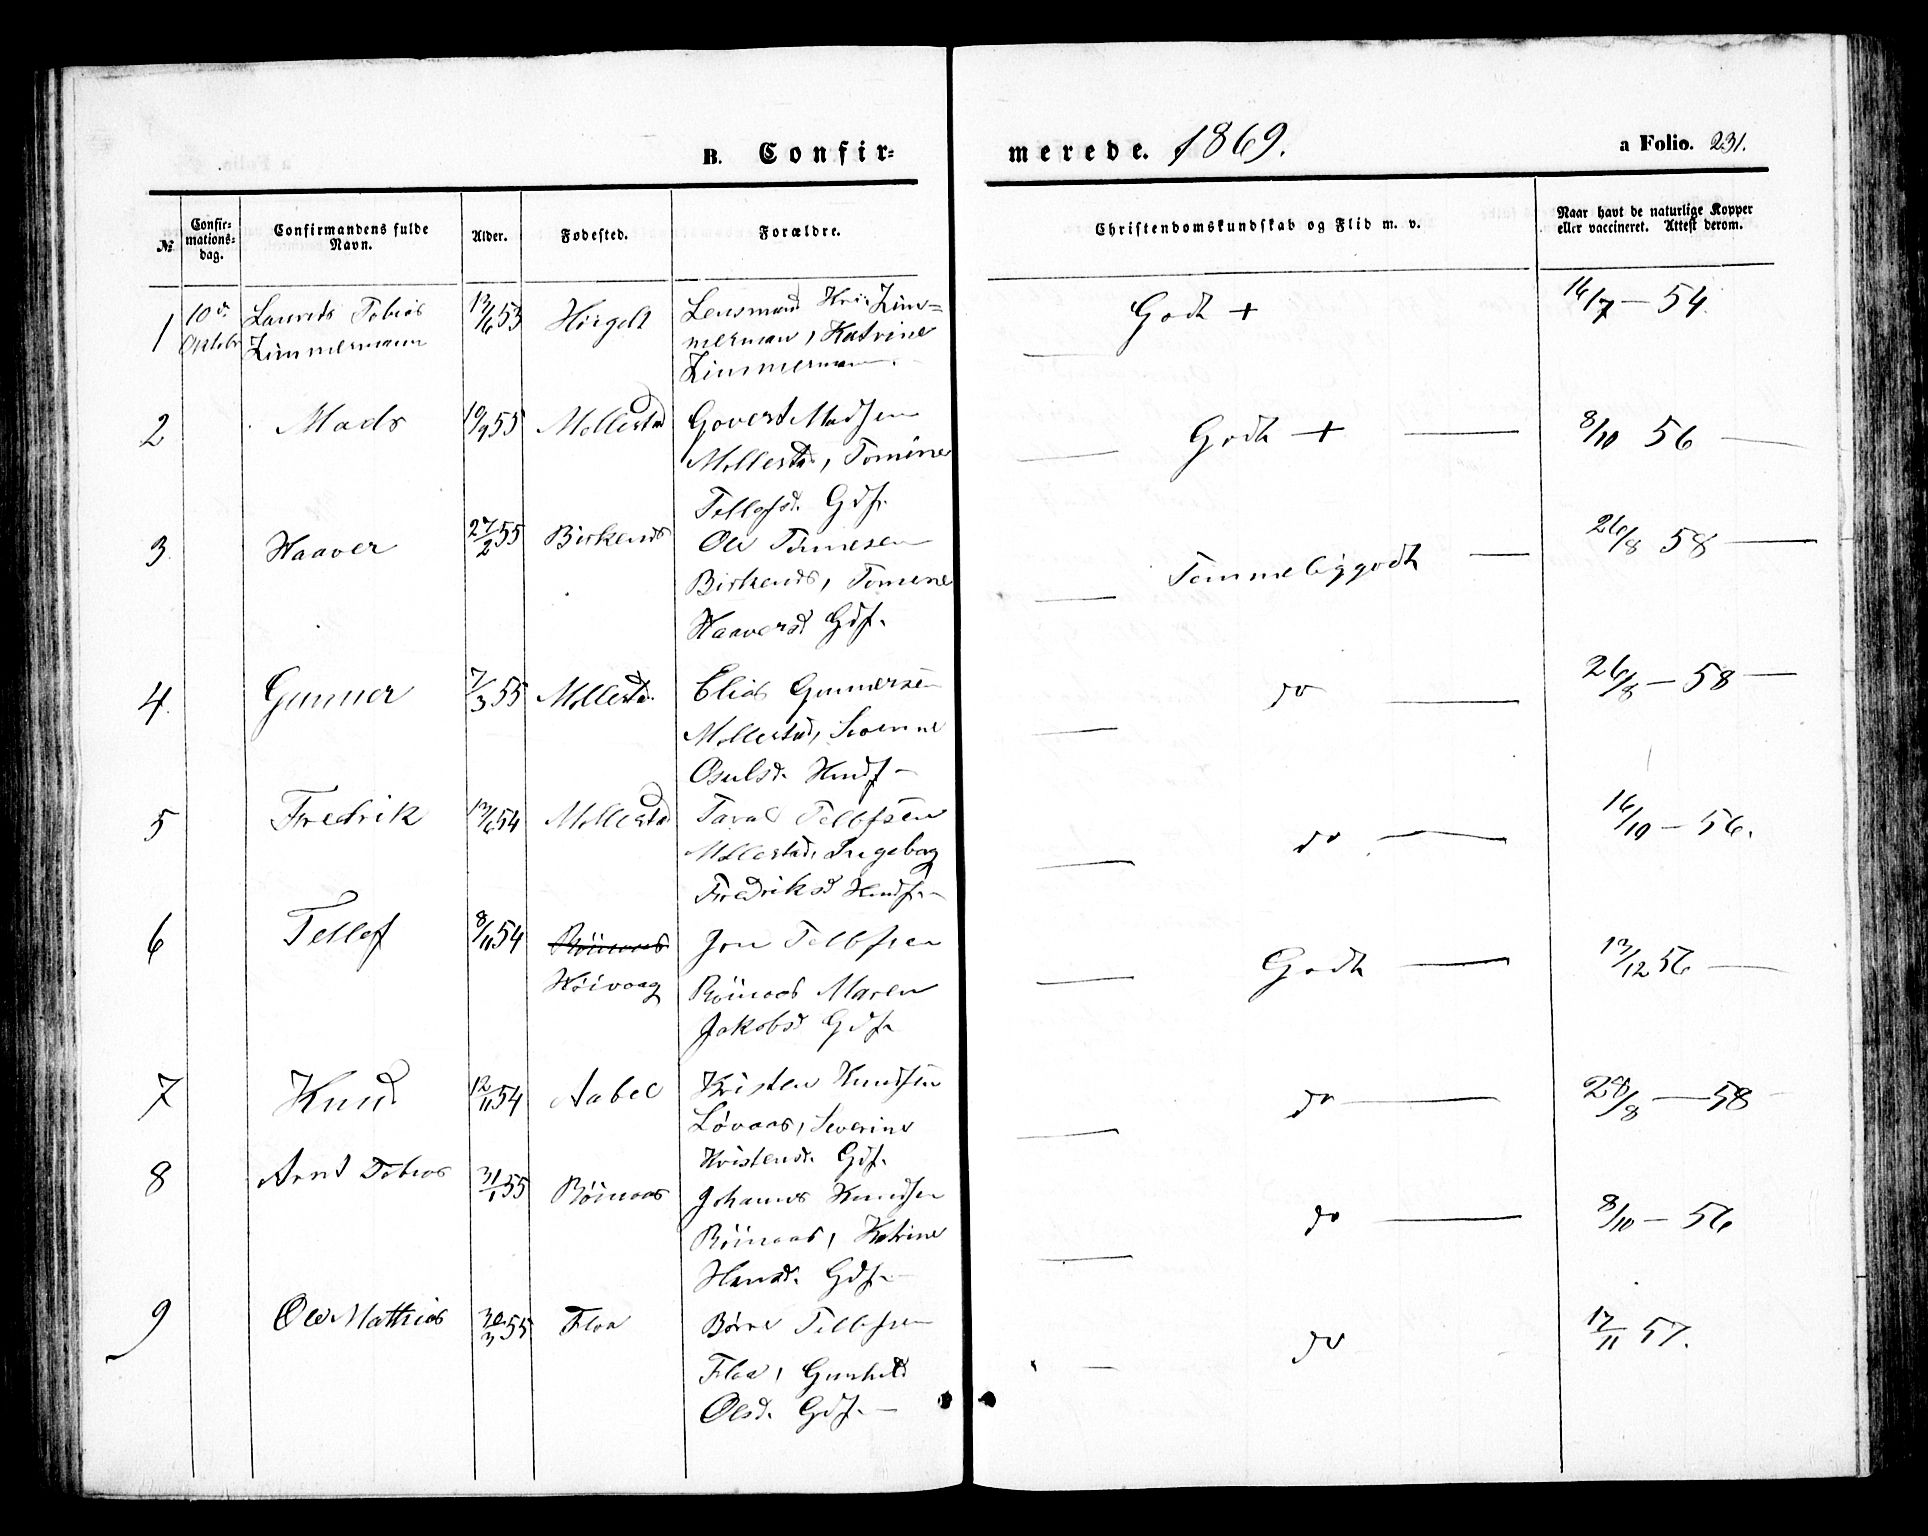 B. Confir-
merede. 1869.
a Folio. 231.
№ Confirmationsdag. Confirmandens fulde Navn. Alder. Fødested. Forældre. Christendomskundskab og Flid m. v. Naar havt de naturlige Kopper eller vaccineret. Attest derom.
1 10d. Laurits Tobias 13/6 53 Lensmand Zim=
Oktobr Zimmermann merman, Katrine
Zimmerman.
Godt + 16/7 — 54
2 Mads 19/9 55 Mollestad Govert Madsen
Mollestad, Tomine
Tellefsd. Gdf.
Godt + 8/10 56
3. Haaver 27/2 55 Birkenes Ole Tønnesen
Birkenes, Tomine
Haaversd Gdf.
Temmeliggodt 26/8 58
4. Gunner 7/3 55 Mollestad Elias Gunnersen
Mollestad,
Osulsd. Hmdf
do 26/8 — 58
5 Fredrik 13/6 54 Mollestad Taral Tellefsen
Mollestad, Ingeborg
Fredriksd Hmdf.
do 16/10 — 56.
6 Tellef 8/11 54 Røinaas Jon Tellefsen
Høivaag Røinaas Maren
Jakobsd Gdf.
Godt 13/12 56
7 Knud 12/11 54 Aabel Kristen Knudsen
Løvaas, Severine
Kristensd. Gdf.
do 28/8 — 58
8 Arnt Tobias 31/1 55 Røinaas Johannes Knudsen
Røinaas, Katrine
Hansd. Gdf.
do 8/10 — 56
9 Ole Mathias 30/3 55 Flaa Børre Tellefsen
Flaa, Gunhild
Olsd. Gdf.
do 17/11 57.